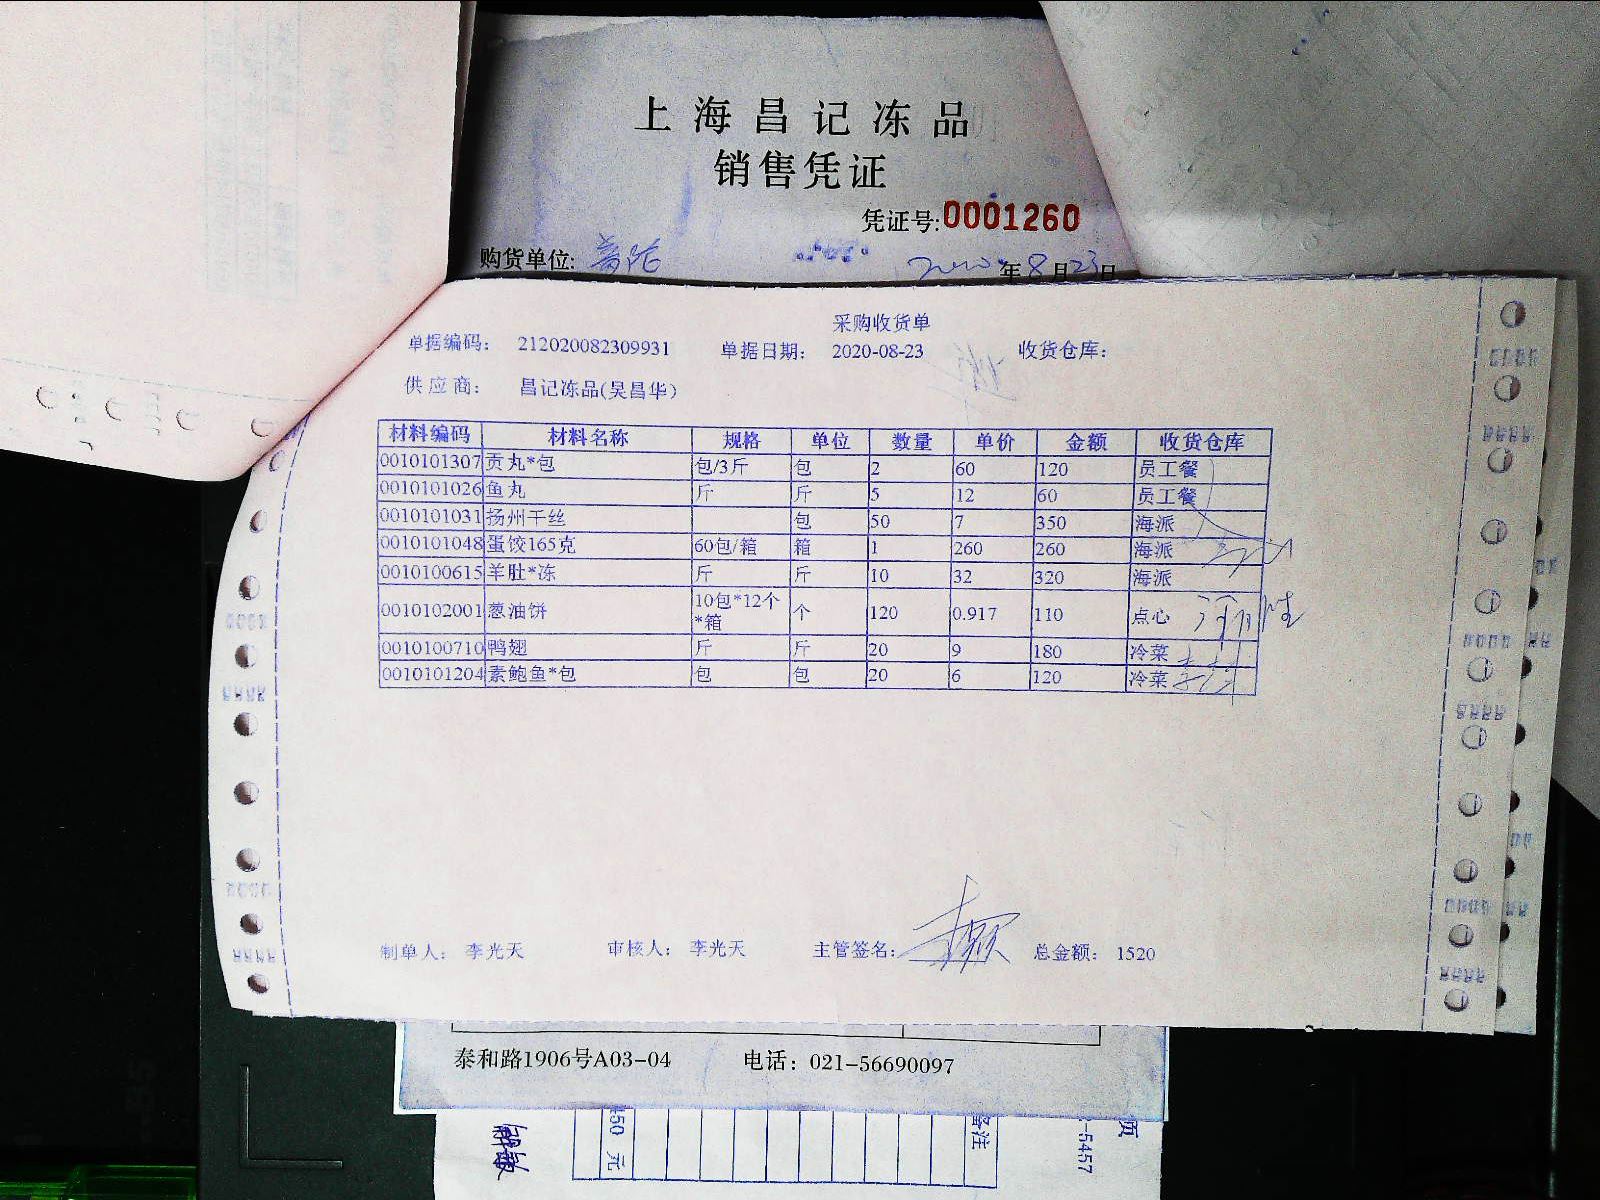 上海昌记冻品
销售凭证
凭证号:0001260
购货单位:
年8月23日
采购收货单
单据编码: 212020082309931 单据日期: 2020-08-23 收货仓库:
供应商: 昌记冻品(吴昌华)
材料编码 材料名称 规格 单位 数量 单价 金额 收货仓库
0010101307 贡丸*包 包/3斤 包 2 60 120 员工餐
0010101026 鱼丸 斤 斤 5 12 60 员工餐
0010101031 扬州干丝 包 50 7 350 海派
0010101048 蛋饺165克 60包/箱 箱 1 260 260 海派
0010100615 羊肚*冻 斤 斤 10 32 320 海派
0010102001 葱油饼 10包*12个*箱 个 120 0.917 110 点心
0010100710 鸭翅 斤 斤 20 9 180 冷菜
0010101204 素鲍鱼*包 包 包 20 6 120 冷菜
制单人: 李光天 审核人: 李光天 主管签名: 总金额: 1520
泰和路1906号A03-04 电话: 021-56690097
450 元
备注
-5457